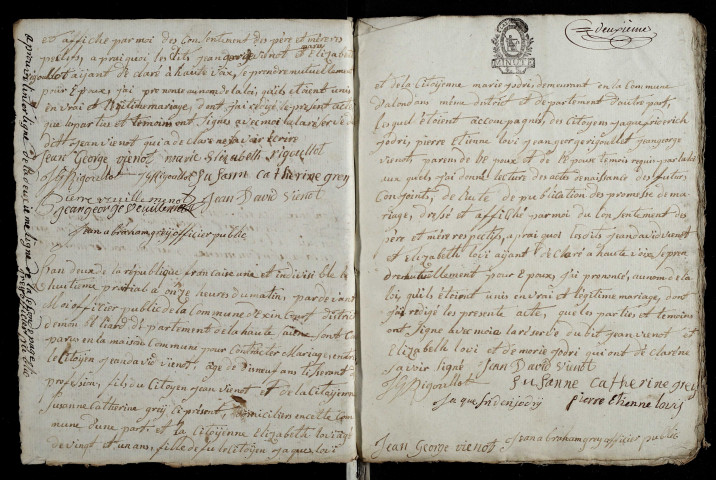 et affiché par moi des Consentement des père et mères
respectifs, a prai quoi lesdits jeangeorge vienot et Elizabeth
Rigoullot aijant de claré à haute voix, se prendre mutuellement
pour Epoux, j'ai prononcé au nom de la loi, qu'ils étoient unis
en vrai et légitime mariage, dont j'ai rédigé le présent acte
que les parties et temoins ont Signés avec moi la réserve du
dit jean vienot qui a de claré ne Savoir Ecrire
Jean George vienot marie Elizabeth Rigoullot
Rigoullot JG Rigoullot Susann Catherine grey
Pierre vuillemenot Jean David vienot
jeangeorge Vuillemenot
Jean abraham grey officier public
L'an deux de la république francaise une et indivisible le
huitieme prairial à onze heures du matin, par devant
Moi officier public de la commune d'Exincourt District
de montbéliard département de la haute Saône sont Com
parus en la maison Commune pour Contracter Mariage, entre
le Citoyen jean david vienot, agé de vingt neuf ans tisserand de
profession, fils du Citoyen jean vienot et de la Citoyenne
Susanne Catherine greÿ ci présent, domiciliers en cette Com
mune d'une part: et la Citoyenne Elizabeth lovi agé
de vingt et un ans, fille de feu le Citoyen jaque lovi
MINUTE
deuxieme
et de la Citoyenne marie jodri demeurant en la Commune
d'alondans même district et département d'autre part,
lesquel étoient accompagnés, des Citoyens jaque frederich
jodri, pierre Etienne lovi jean george rigoullot jeangeorge
vienot parens de l'époux et de l'Epouse temoins requis par lesdit
aux quels j'ai donné lecture des actes de naissance des futurs
Conjoints, de l'acte de publication des promesse de ma
riage, dressé et affiché par moi du Consentement des
père et mère respectifs, a prai quoi lesdits jean david vienot
et Elizabeth lovi aijant déclaré a haute voix se pren
dre mutuellement pour Epoux, j'ai prononcé, au nom de la
loi, qu'ils étoient unis en vrai et légitime mariage, dont
j'ai rédigé les presente acte, que les parties et temoins
ont Signé avec moi la réserve du dit jean vienot et
Elizabeth lovi et de marie jodri qui ont de claré ne
savoir signé Jean David vienot
JG Rigoullot Susanne Catherine grey
Jaque fridenjodrÿ pierre Etienne lovis
Jean George vienot Jean abraham grey officier public